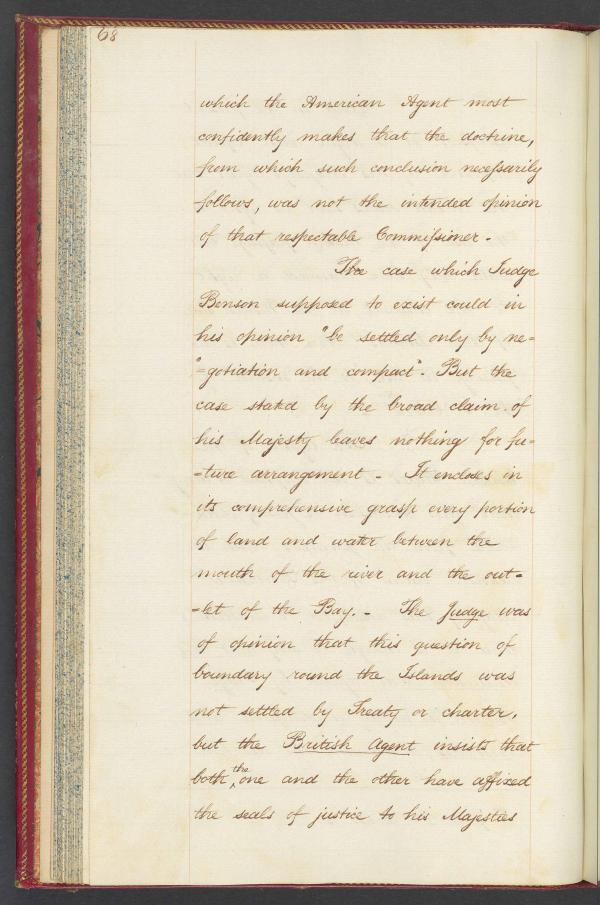 68
which the American Agent most
confidently makes that the doctrine,
from which such conclusion necessarily
follows, was not the intended opinion
of that respectable Commissioner.
The case which Judge
Benson supposed to exist could in
his opinion "be settled only by ne=
"=gotiation and compact". But the
case stated by the broad claim of
his Majesty leaves nothing for fu=
=ture arrangement - It encloses in
its comprehensive grasp every portion
of land and water between the
mouth of the river and the out=
=let of the Bay. - The Judge was
of opinion that this question of
boundary round the Islands was
not settled by Treaty or charter,
but the British Agent insists that
both, the one and the other have affixed
the seals of justice to his Majesties